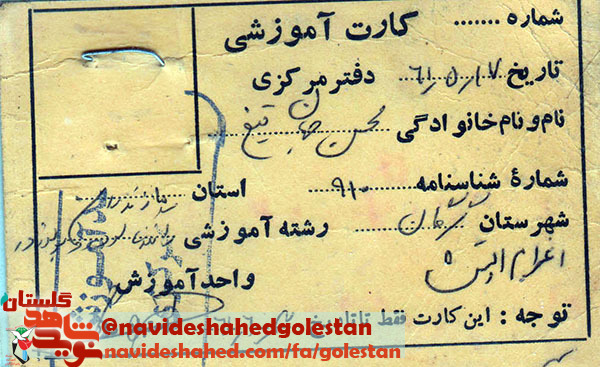 کارت آموزشی
شماره ........
تاریخ ۶۱٫۵٫۱۷ دفتر مرکزی
نام و نام خانوادگی محسن جهان تیغ
شمارهٔ شناسنامه ۹۱۰ استان مازندران
شهرستان گرگان رشته آموزشی
اعزام
واحد آموزش
توجه : این کارت فقط تا تاریخ
گلستان
نوید شاهد
@navideshahedgolestan
navideshahed.com/fa/golestan